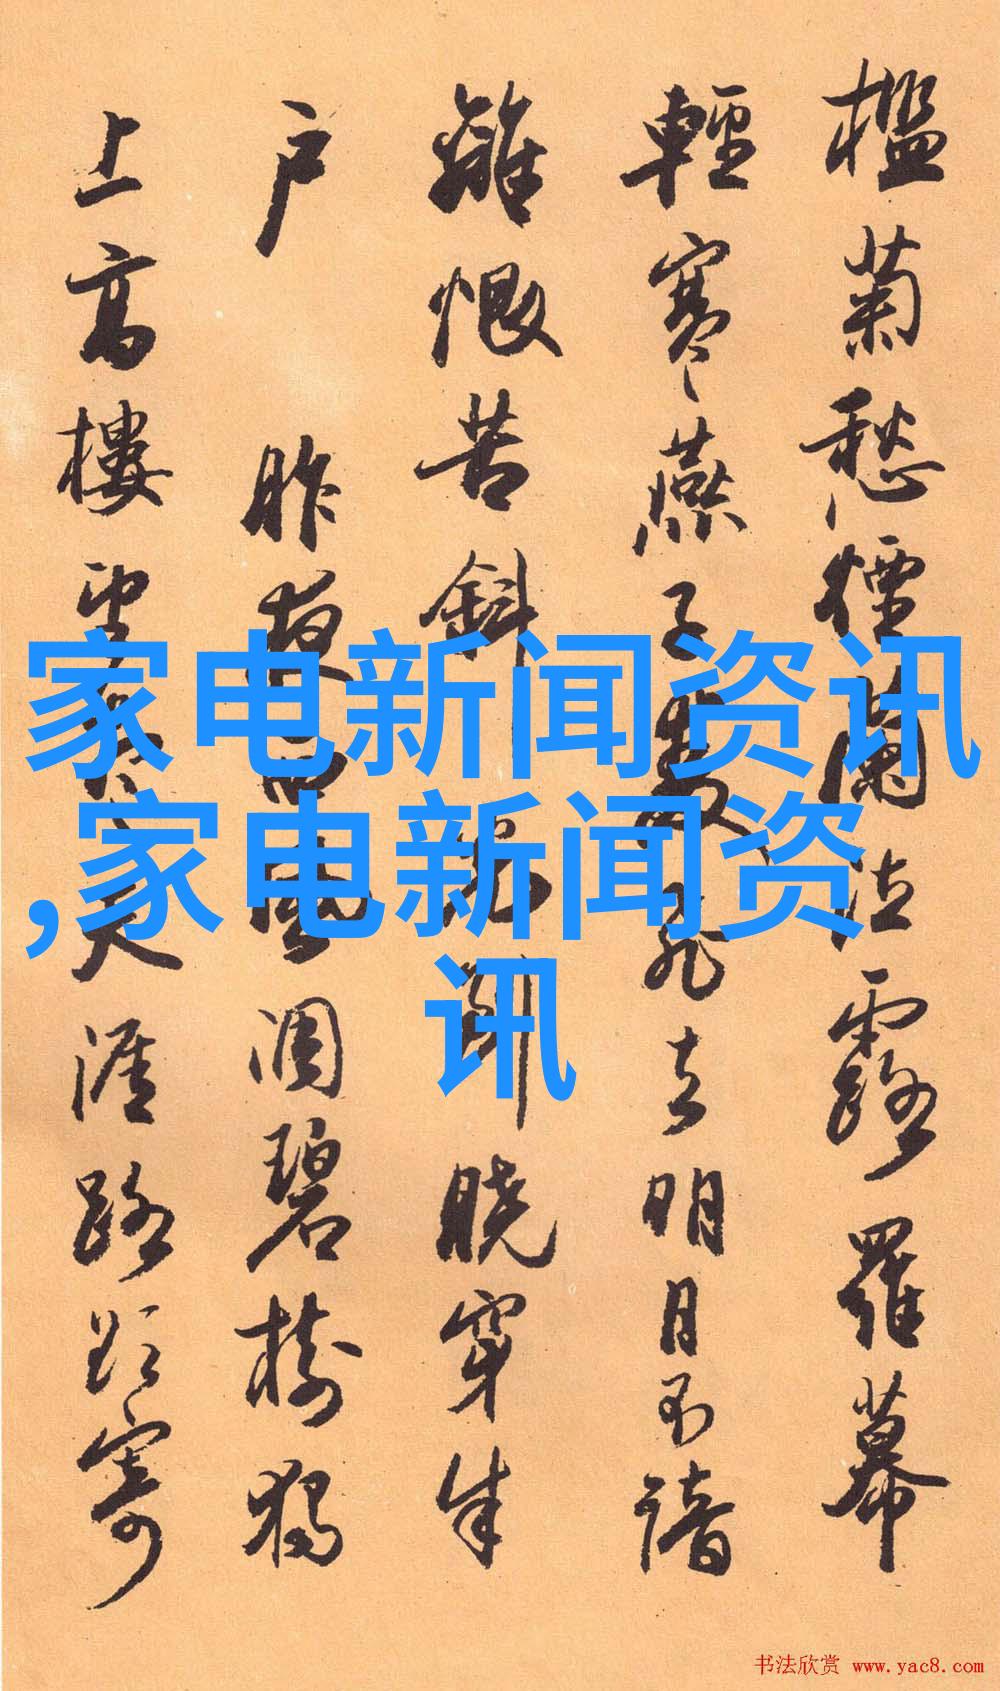 檻菊愁煙蘭泣露羅幕
輕寒燕子雙飛去明月不諳
離恨苦斜光到曉穿朱
户 昨夜西風凋碧樹獨
上高樓望盡天涯路欲寄
家电新闻资讯
,家电新闻资
讯
书法欣赏 www.yac8.com